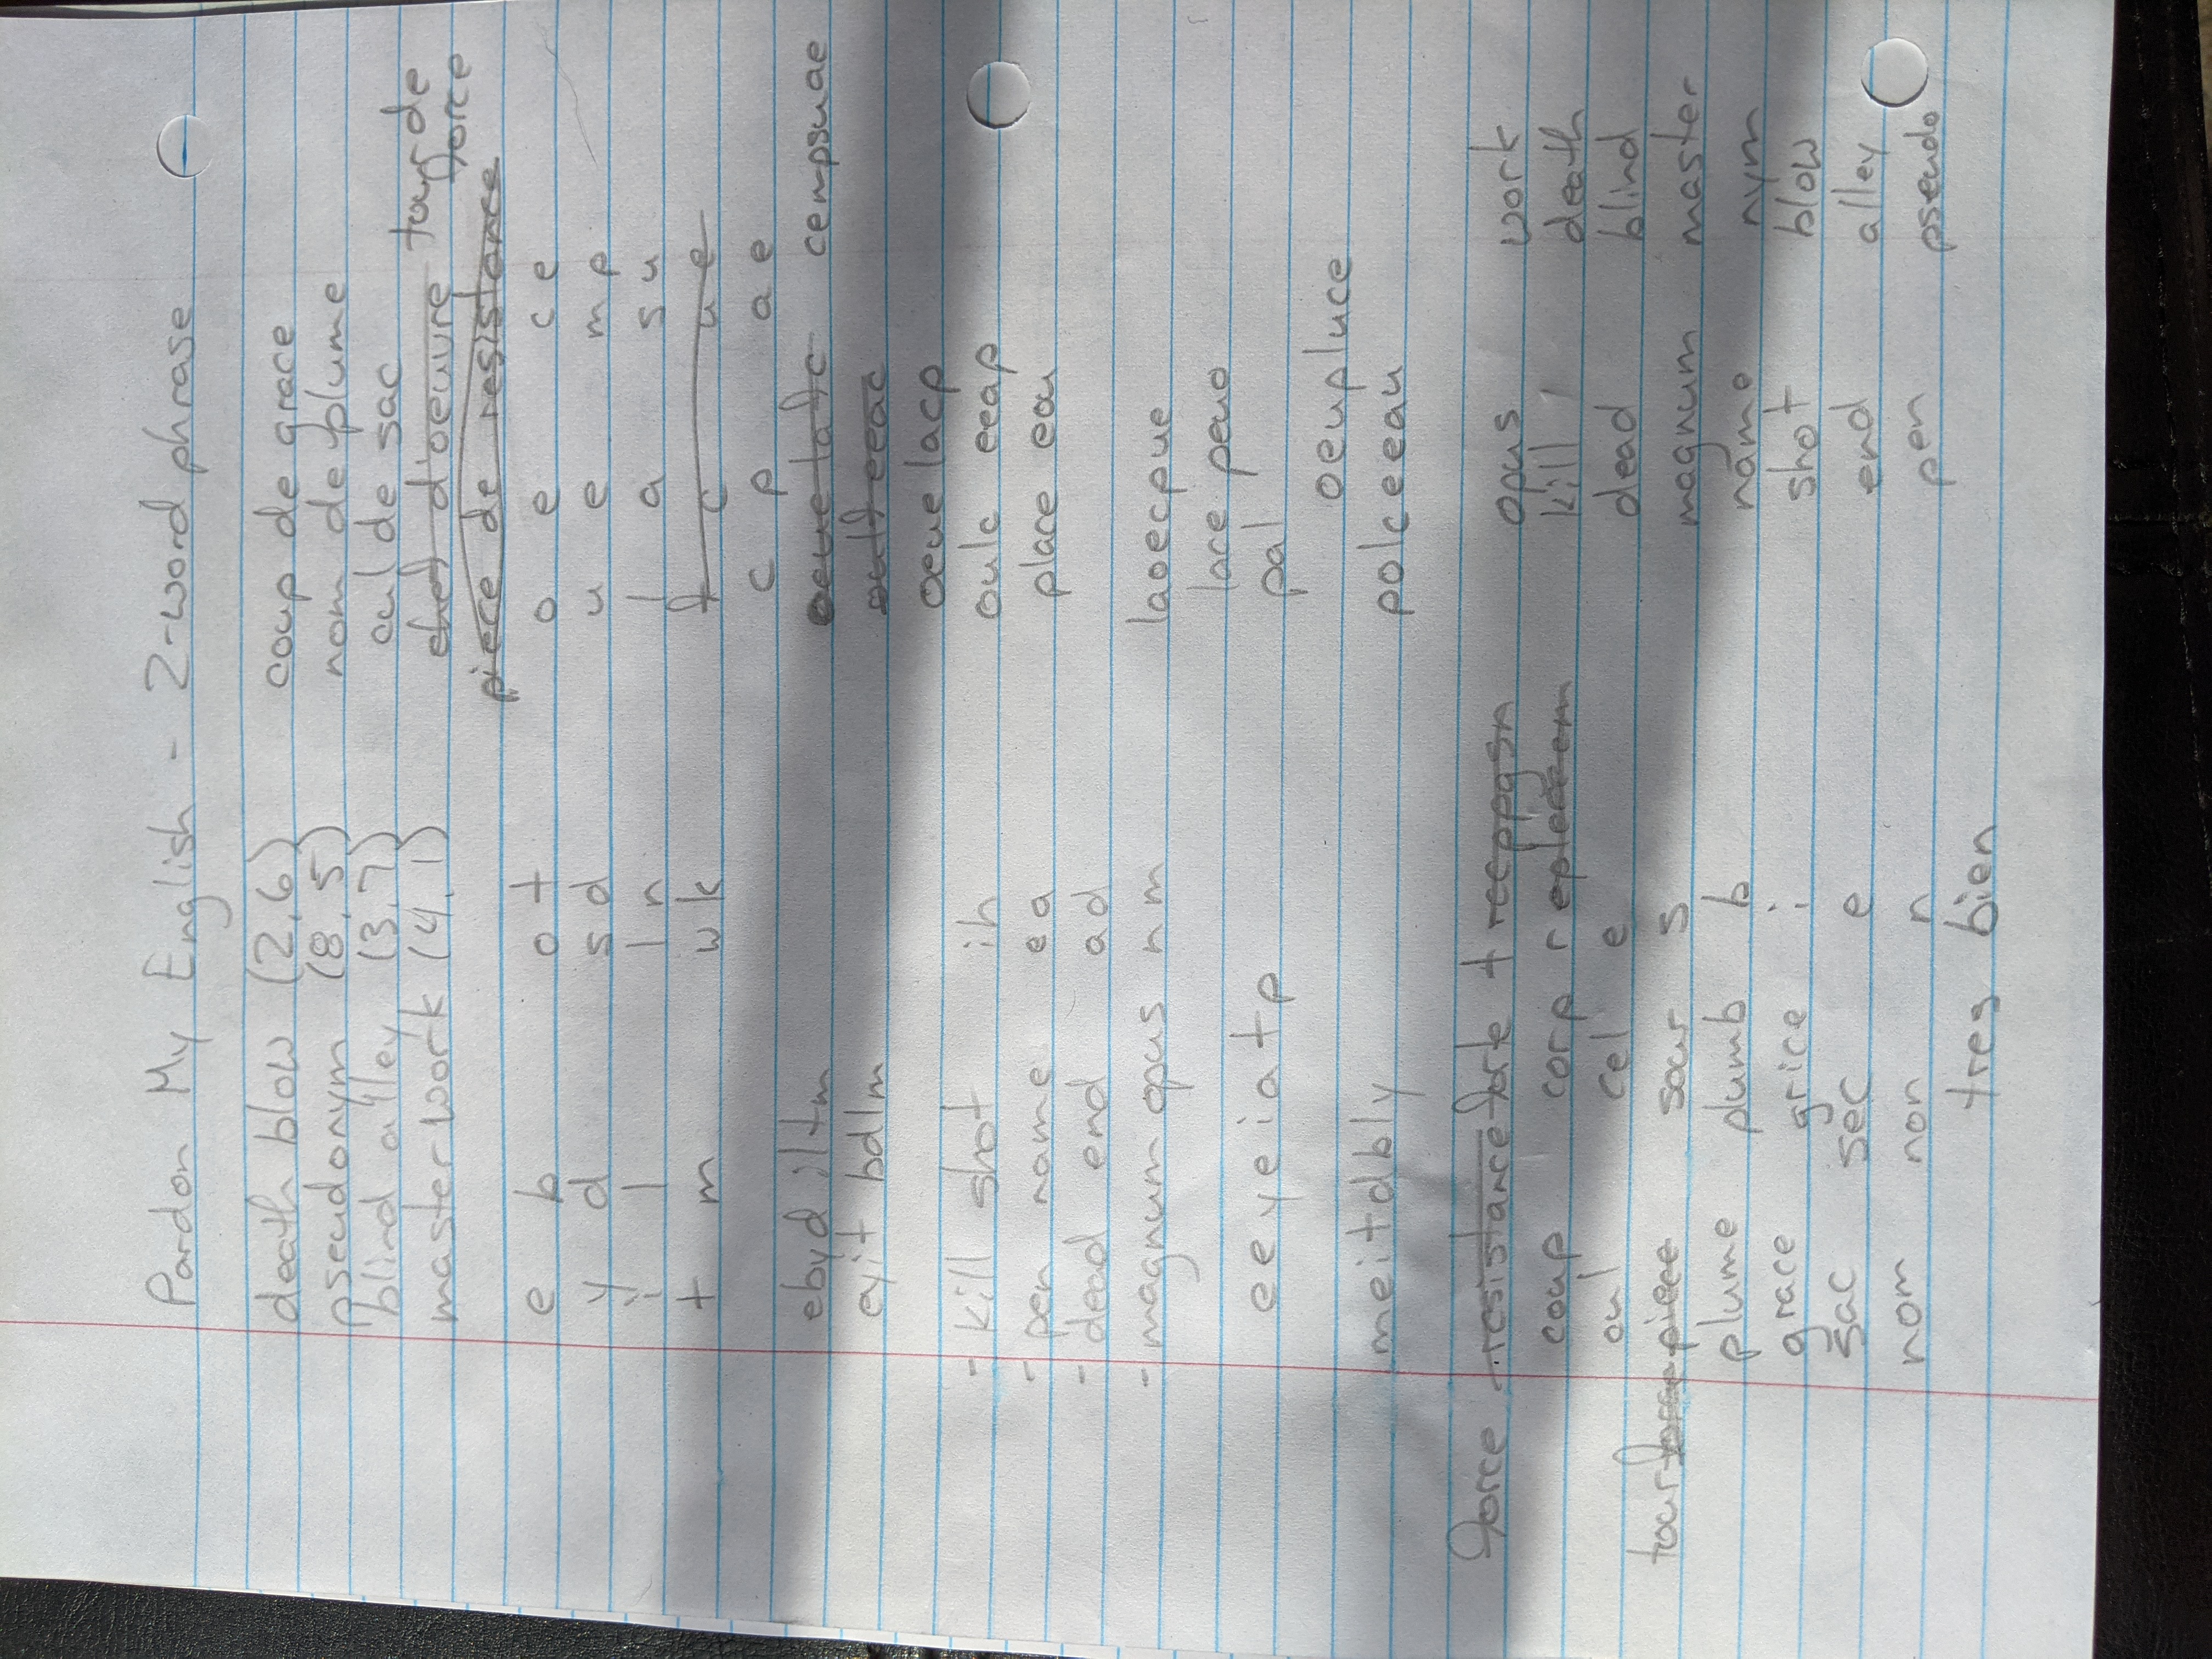 Pardon My English - 2-word phrase
death blow (2,6) coup de grace
pseudonym (8,5) nom de plume
blind alley (3,7) cul de sac
masterwork (4,1) chef d'oeuvre tour de force
piece de resistance
e b o t o e c e
y d s d u e m p
i l l n l a s u
t m w k f c u e
c p a e
ebyd iltm oeue lafc cempsuae
eyit bdlm oulf eeac
oeue lacp
- kill shot i h oulc eeap
- pen name e a place eou
- dead end a d
- magnum opus n m laoecpue
lace peuo
e e y e i a t p pal
oeupluce
meitdbly polceeau
force resistance forte t reeppgsn opus work
coup corp r epleeeem kill death
cul cel e dead blind
tour force piece sour s magnum master
plume plumb b name nym
grace grice i shot blow
sac sec e end alley
nom non n pen pseudo
tres bien